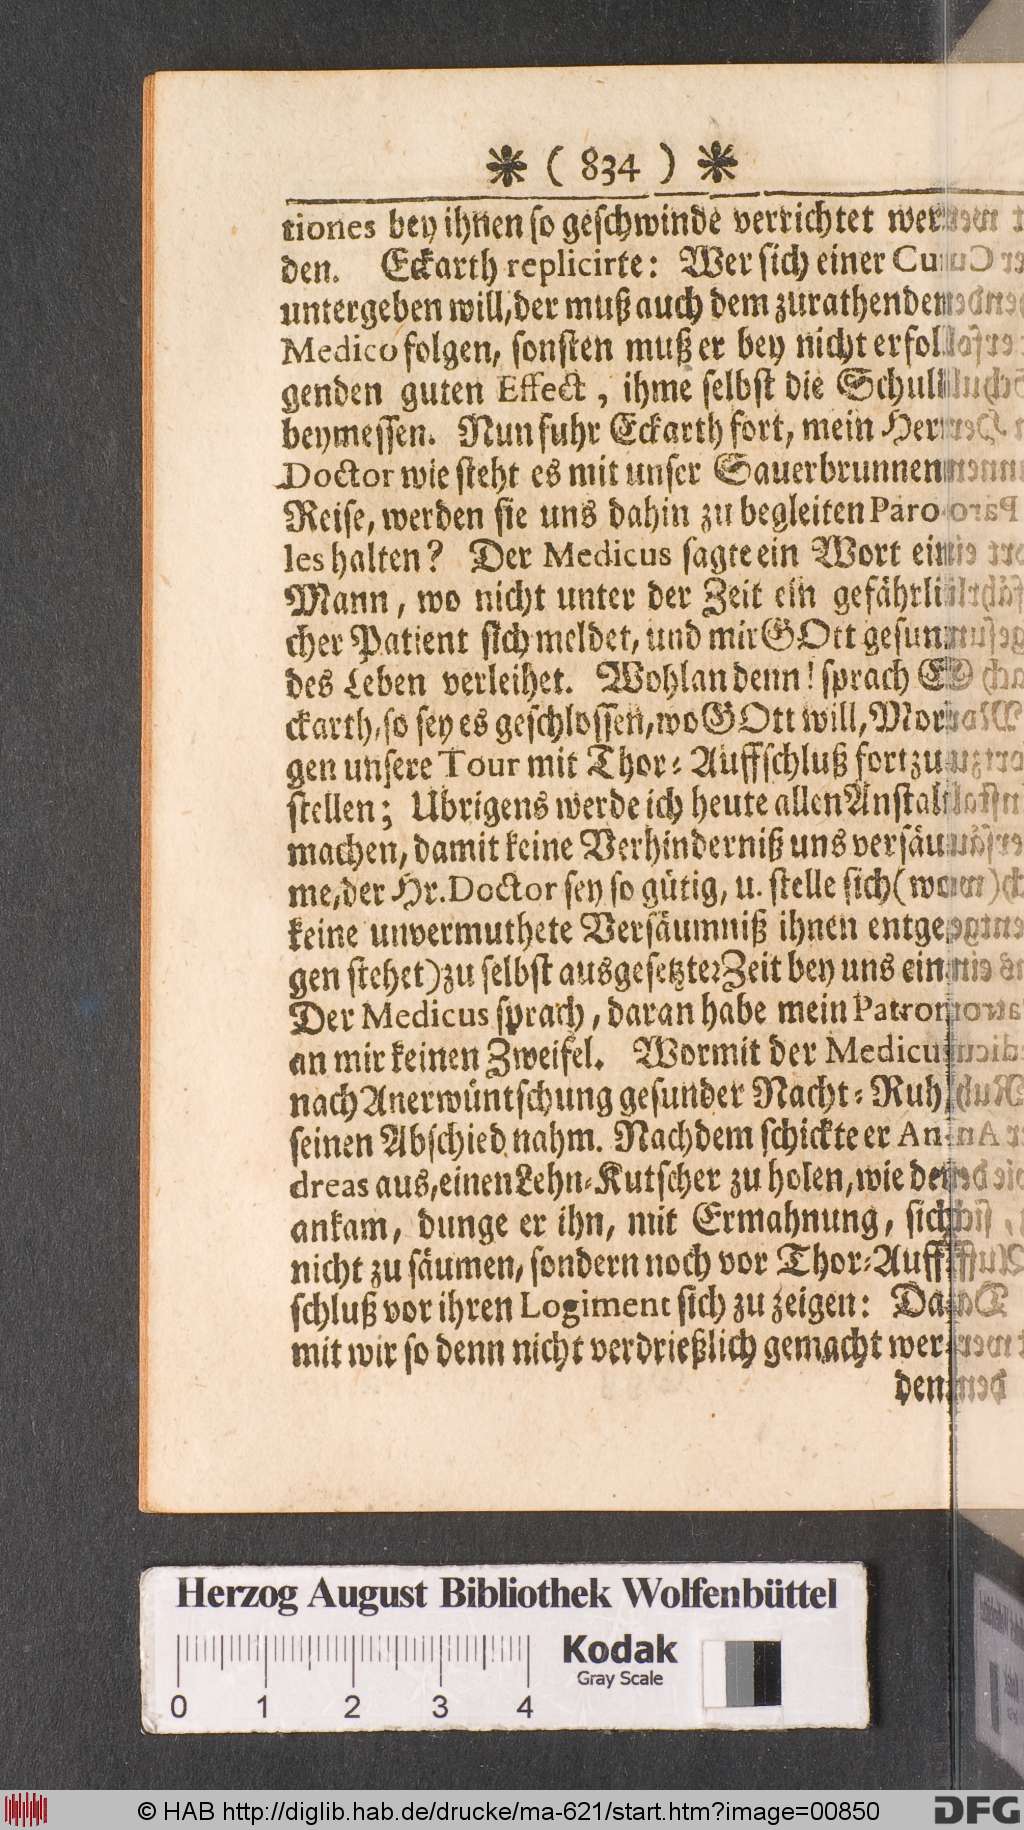 * ( 834 ) *
tiones bey ihnen so geschwinde verrichtet wer-
den. Eckarth replicirte: Wer sich einer Cur
untergeben will, der muß auch dem zurathenden
Medico folgen, sonsten muß er bey nicht erfol-
genden guten Effect, ihme selbst die Schuld
beymessen. Nun fuhr Eckarth fort, mein Herr
Doctor wie steht es mit unser Sauerbrunnen-
Reise, werden sie uns dahin zu begleiten Paro-
les halten? Der Medicus sagte ein Wort ein
Mann, wo nicht unter der Zeit ein gefährli-
cher Patient sich meldet, und mir GOtt gesun-
des Leben verleihet. Wohlan denn! sprach E-
ckarth, so sey es geschlossen, wo GOtt will, Mor-
gen unsere Tour mit Thor-Auffschluß fortzu-
stellen; Ubrigens werde ich heute allen Anstalt
machen, damit keine Verhinderniß uns versäu-
me, der Hr. Doctor sey so gütig, u. stelle sich (wo
keine unvermuthete Versäumniß ihnen entge-
gen stehet) zu selbst ausgesetzter Zeit bey uns ein
Der Medicus sprach, daran habe mein Patron
an mir keinen Zweifel. Wormit der Medicus
nach Anerwüntschung gesunder Nacht-Ruh,
seinen Abschied nahm. Nachdem schickte er An-
dreas aus, einen Lehn-Kutscher zu holen, wie der
ankam, dunge er ihn, mit Ermahnung, sich
nicht zu säumen, sondern noch vor Thor-Auff-
schluß vor ihren Logiment sich zu zeigen: Da-
mit wir so denn nicht verdrießlich gemacht wer-
den
Herzog August Bibliothek Wolfenbüttel
Kodak
Gray Scale
0 1 2 3 4
© HAB http://diglib.hab.de/drucke/ma-621/start.htm?image=00850
DFG